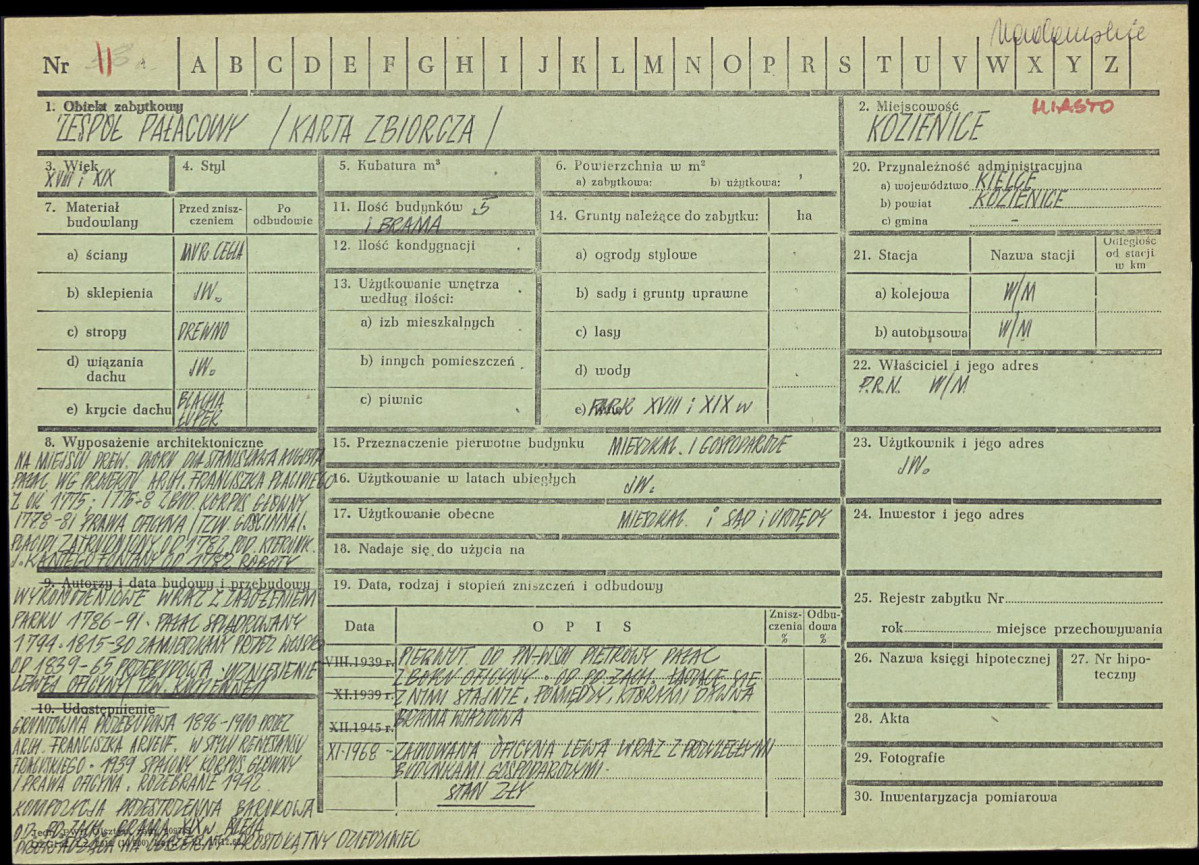 Nr 11 A B C D E F G H I J K L M N O P R S T U V W X Y Z
1. Obiekt zabytkowy
ZESPÓŁ PAŁACOWY /KARTA ZBIORCZA/
2. Miejscowość MIASTO
KOZIENICE
3. Wiek
XVIII i XIX
4. Styl
5. Kubatura m³
6. Powierzchnia w m²
a) zabytkowa: b) użytkowa:
7. Materiał budowlany
Przed zniszczeniem
Po odbudowie
a) ściany MUR. CEGŁA
b) sklepienia JW.
c) stropy DREWNO
d) wiązania dachu JW.
e) krycie dachu BLACHA ŁUPEK
11. Ilość budynków 5
i BRAMA
12. Ilość kondygnacji
13. Użytkowanie wnętrza według ilości:
a) izb mieszkalnych
b) innych pomieszczeń
c) piwnic
14. Grunty należące do zabytku: ha
a) ogrody stylowe
b) sady i grunty uprawne
c) lasy
d) wody
e) PARK XVIII i XIX w
20. Przynależność administracyjna
a) województwo KIELCE
b) powiat KOZIENICE
c) gmina –
21. Stacja
Nazwa stacji
Odległość od stacji w km
a) kolejowa W/M
b) autobusowa W/M
22. Właściciel i jego adres
P.R.N. W/M
8. Wyposażenie architektoniczne
NA MIEJSCU DREW. DWORU DLA STANISŁAWA AUGUSTA
PAŁAC WG PROJEKTU ARCH. FRANCISZKA PLACIDIEGO
Z OK. 1775; 1776-8 ZBUD. KORPUS GŁÓWNY
1778-81 PRAWA OFICYNA /TZW. GOŚCINNA/.
PLACIDI ZATRUDNIONY OD 1782 POD. KIERUNK.
J. KAMIEGO FONTANY OD 1782 ROBOTY
9. Autorzy i data budowy i przebudowy
WYKOŃCZENIOWE WRAZ Z ZAŁOŻENIEM
PARKU 1786-91. PAŁAC SPLĄDROWANY
1794. 1815-30 ZAMIESZKANY PRZEZ WOJSKO
OD 1839-65 PRZEBUDOWA. WZNIESIENIE
LEWEJ OFICYNY /TZW. KUCHENNEJ/
10. Udostępnienie
GRUNTOWNA PRZEBUDOWA 1896-1900 PRZEZ
ARCH. FRANCISZKA ARVEUF. W STYLU RENESANSU
FRANCUSKIEGO. 1939 SPALONY KORPUS GŁÓWNY
I PRAWA OFICYNA. ROZEBRANE 1942.
KOMPOZYCJA PRZESTRZENNA BAROKOWA
OD PD. ZACH. BRAMA ALEJA
NA OBSZERNY PROSTOKĄTNY DZIEDZINIEC
15. Przeznaczenie pierwotne budynku MIESZKAL. I GOSPODARCZE
16. Użytkowanie w latach ubiegłych JW.
17. Użytkowanie obecne MIESZKAL. i SĄD i URZĘDY
18. Nadaje się do użycia na
19. Data, rodzaj i stopień zniszczeń i odbudowy
Data OPIS Zniszczenia % Odbudowa %
VIII.1939 r. PIERWOT. OD PN-WSCH PIĘTROWY PAŁAC
Z BOKU OFICYNY. OD PD. ZACH. ŁĄCZĄCE SIĘ
XI.1939 r. Z NIMI STAJNIE, POMIĘDZY, KTÓRYMI DAWNA
XII.1945 r. BRAMA WJAZDOWA
XI-1968 - ZACHOWANA OFICYNA LEWA WRAZ Z PRZYLEGŁYMI
BUDYNKAMI GOSPODARCZYMI.
STAN ZŁY
23. Użytkownik i jego adres
JW.
24. Inwestor i jego adres
25. Rejestr zabytku Nr
rok miejsce przechowywania
26. Nazwa księgi hipotecznej
27. Nr hipoteczny
28. Akta
29. Fotografie
30. Inwentaryzacja pomiarowa